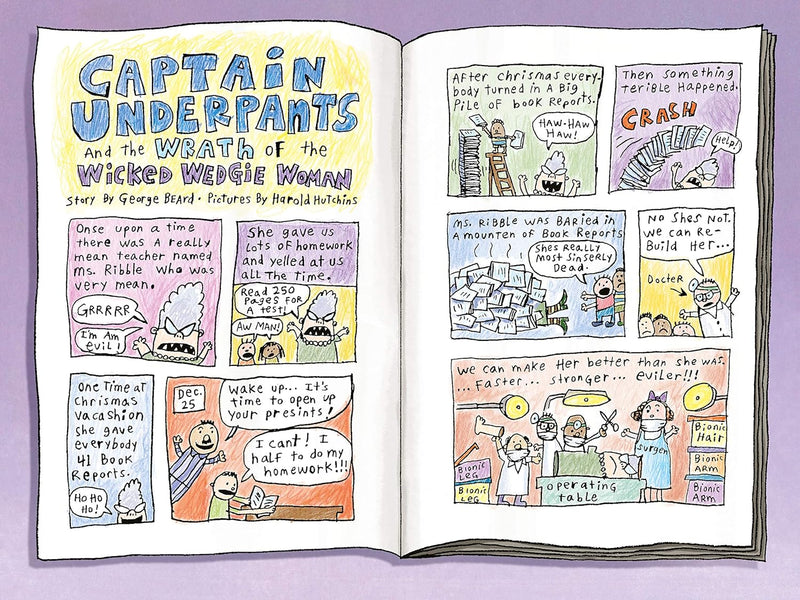 CAPTAIN
UNDERPANTS
And the WRATH of the
WICKED WEDGIE WOMAN
Story By George BEArd · Pictures By Harold Hutchins
Once upon a time
there was A really
mean teacher named
Ms. Ribble who was
very mean.
GRRRRR
I'm Am
evil!
She gave us
Lots of homework
and yelled at us
all the time.
Read 250
Pages for
A test!
AW MAN!
One Time at
Chrismas
vacashion
she gave
everybody
41 Book
Reports.
Ho Ho
Ho!
Dec.
25
Wake up... It's
time to open up
your presints!
I cant! I
half to do my
homework!!!
After Chrismas every-
body turned in A Big
Pile of book Reports.
HAW-HAW
HAW!
Then something
terible Happened.
CRASH
Help!
Ms. Ribble was baried in
A mounten of Book Reports
She's Really
Most Sinserly
Dead.
No She's Not.
we can Re-
Build Her...
Docter
We can mAke Her better than she was.
... Faster... stronger... eviler!!!
Bionic
LEG
Bionic
LEG
operating
table
surgen
Bionic
Hair
Bionic
ARM
Bionic
ARM